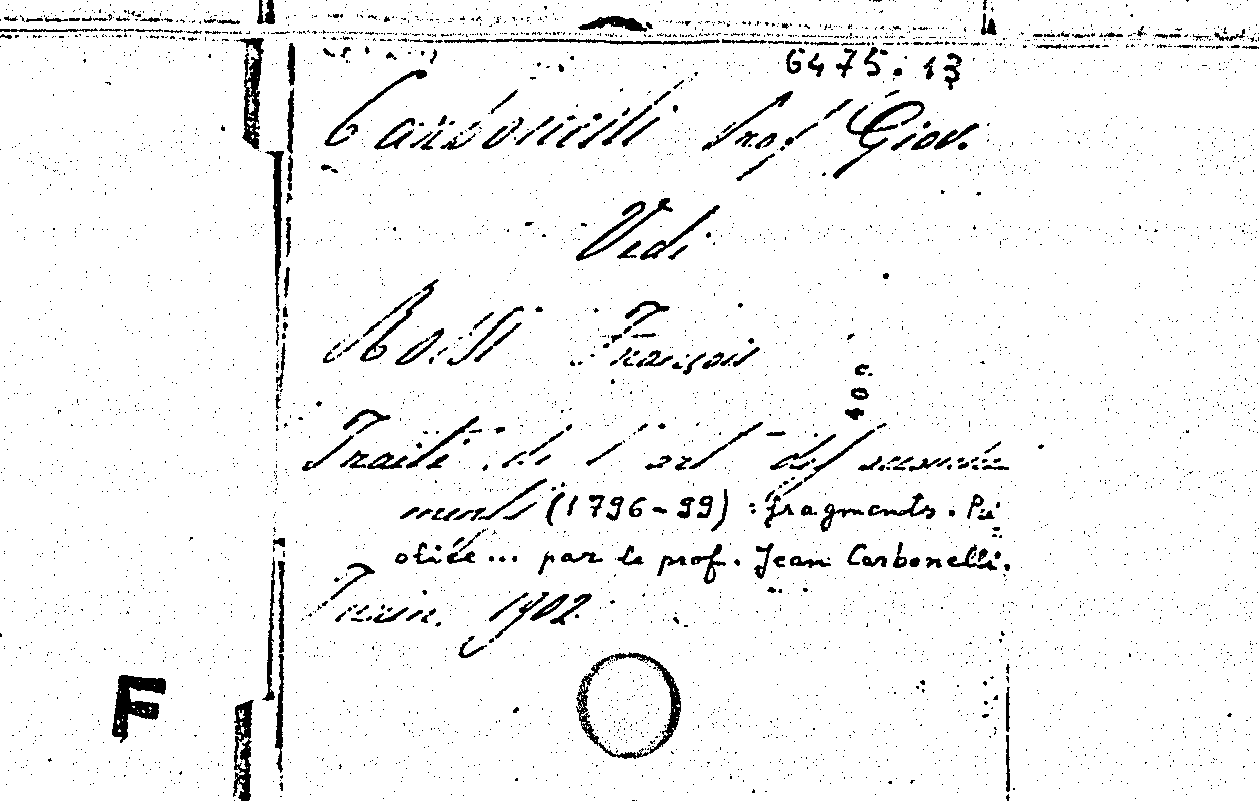 6475.13
Carbonelli Prof Giov.
Vedi
Rossi François
40 c.
Traité de l'art des accouche
ments (1796-99) : fragments. Pu
bliée... par le prof. Jean Carbonelli.
Turin. 1902
F